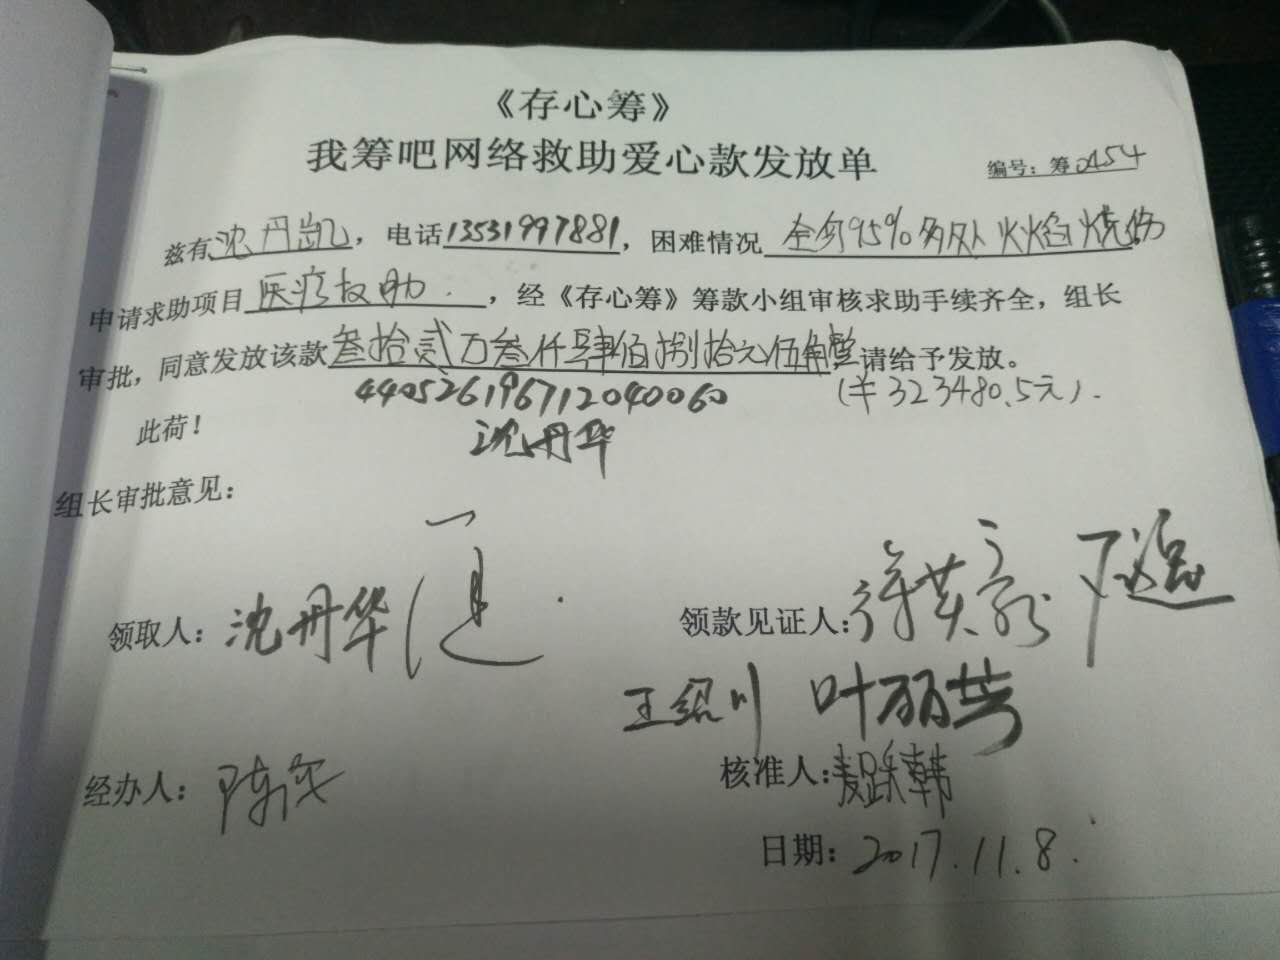 《存心筹》
我筹吧网络救助爱心款发放单
编号：筹0454
兹有沈丹凯，电话13531997881，困难情况全身95%多处火焰烧伤
申请求助项目医疗救助．，经《存心筹》筹款小组审核求助手续齐全，组长
审批，同意发放该款叁拾贰万叁仟肆佰捌拾元伍角整请给予发放。
440526196712040060 (￥323480.5元).
此荷！ 沈丹华
组长审批意见：
领取人：沈丹华 领款见证人：
王绍川 叶丽芸
经办人： 核准人：
日期：2017.11.8.